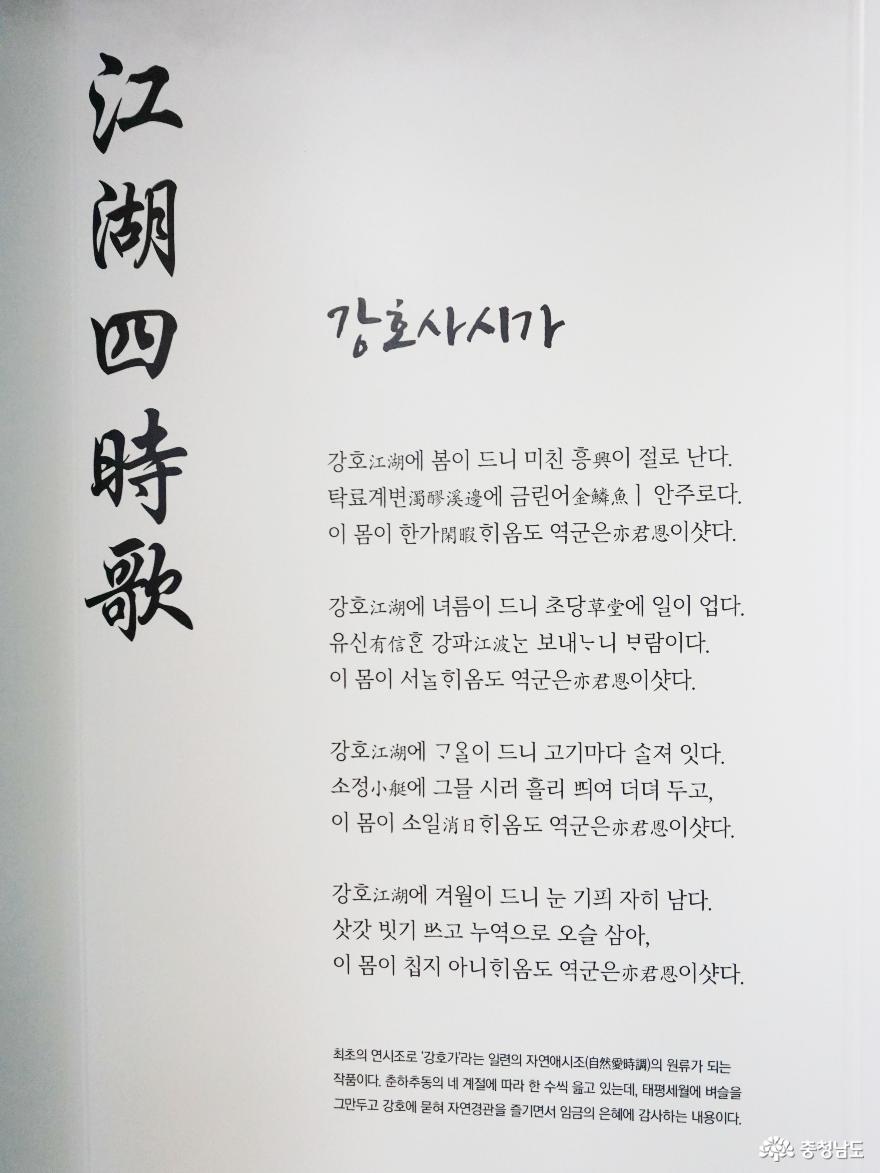 江湖四時歌
강호사시가
강호江湖에 봄이 드니 미친 흥興이 절로 난다.
탁료계변濁醪溪邊에 금린어金鱗魚ㅣ 안주로다.
이 몸이 한가閑暇ᄒᆡ옴도 역군은亦君恩이샷다.
강호江湖에 녀름이 드니 초당草堂에 일이 업다.
유신有信ᄒᆞᆫ 강파江波ᄂᆞᆫ 보내ᄂᆞ니 ᄇᆞ람이다.
이 몸이 서ᄂᆞᆯᄒᆡ옴도 역군은亦君恩이샷다.
강호江湖에 ᄀᆞ을이 드니 고기마다 ᄉᆞᆯ져 잇다.
소정小艇에 그믈 시러 흘리 ᄯᅴ여 더뎌 두고,
이 몸이 소일消日ᄒᆡ옴도 역군은亦君恩이샷다.
강호江湖에 겨월이 드니 눈 기픠 자히 남다.
삿갓 빗기 ᄡᅳ고 누역으로 오슬 삼아,
이 몸이 칩지 아니ᄒᆡ옴도 역군은亦君恩이샷다.
최초의 연시조로 '강호가'라는 일련의 자연애시조(自然愛時調)의 원류가 되는
작품이다. 춘하추동의 네 계절에 따라 한 수씩 읊고 있는데, 태평세월에 벼슬을
그만두고 강호에 묻혀 자연경관을 즐기면서 임금의 은혜에 감사하는 내용이다.
충청남도